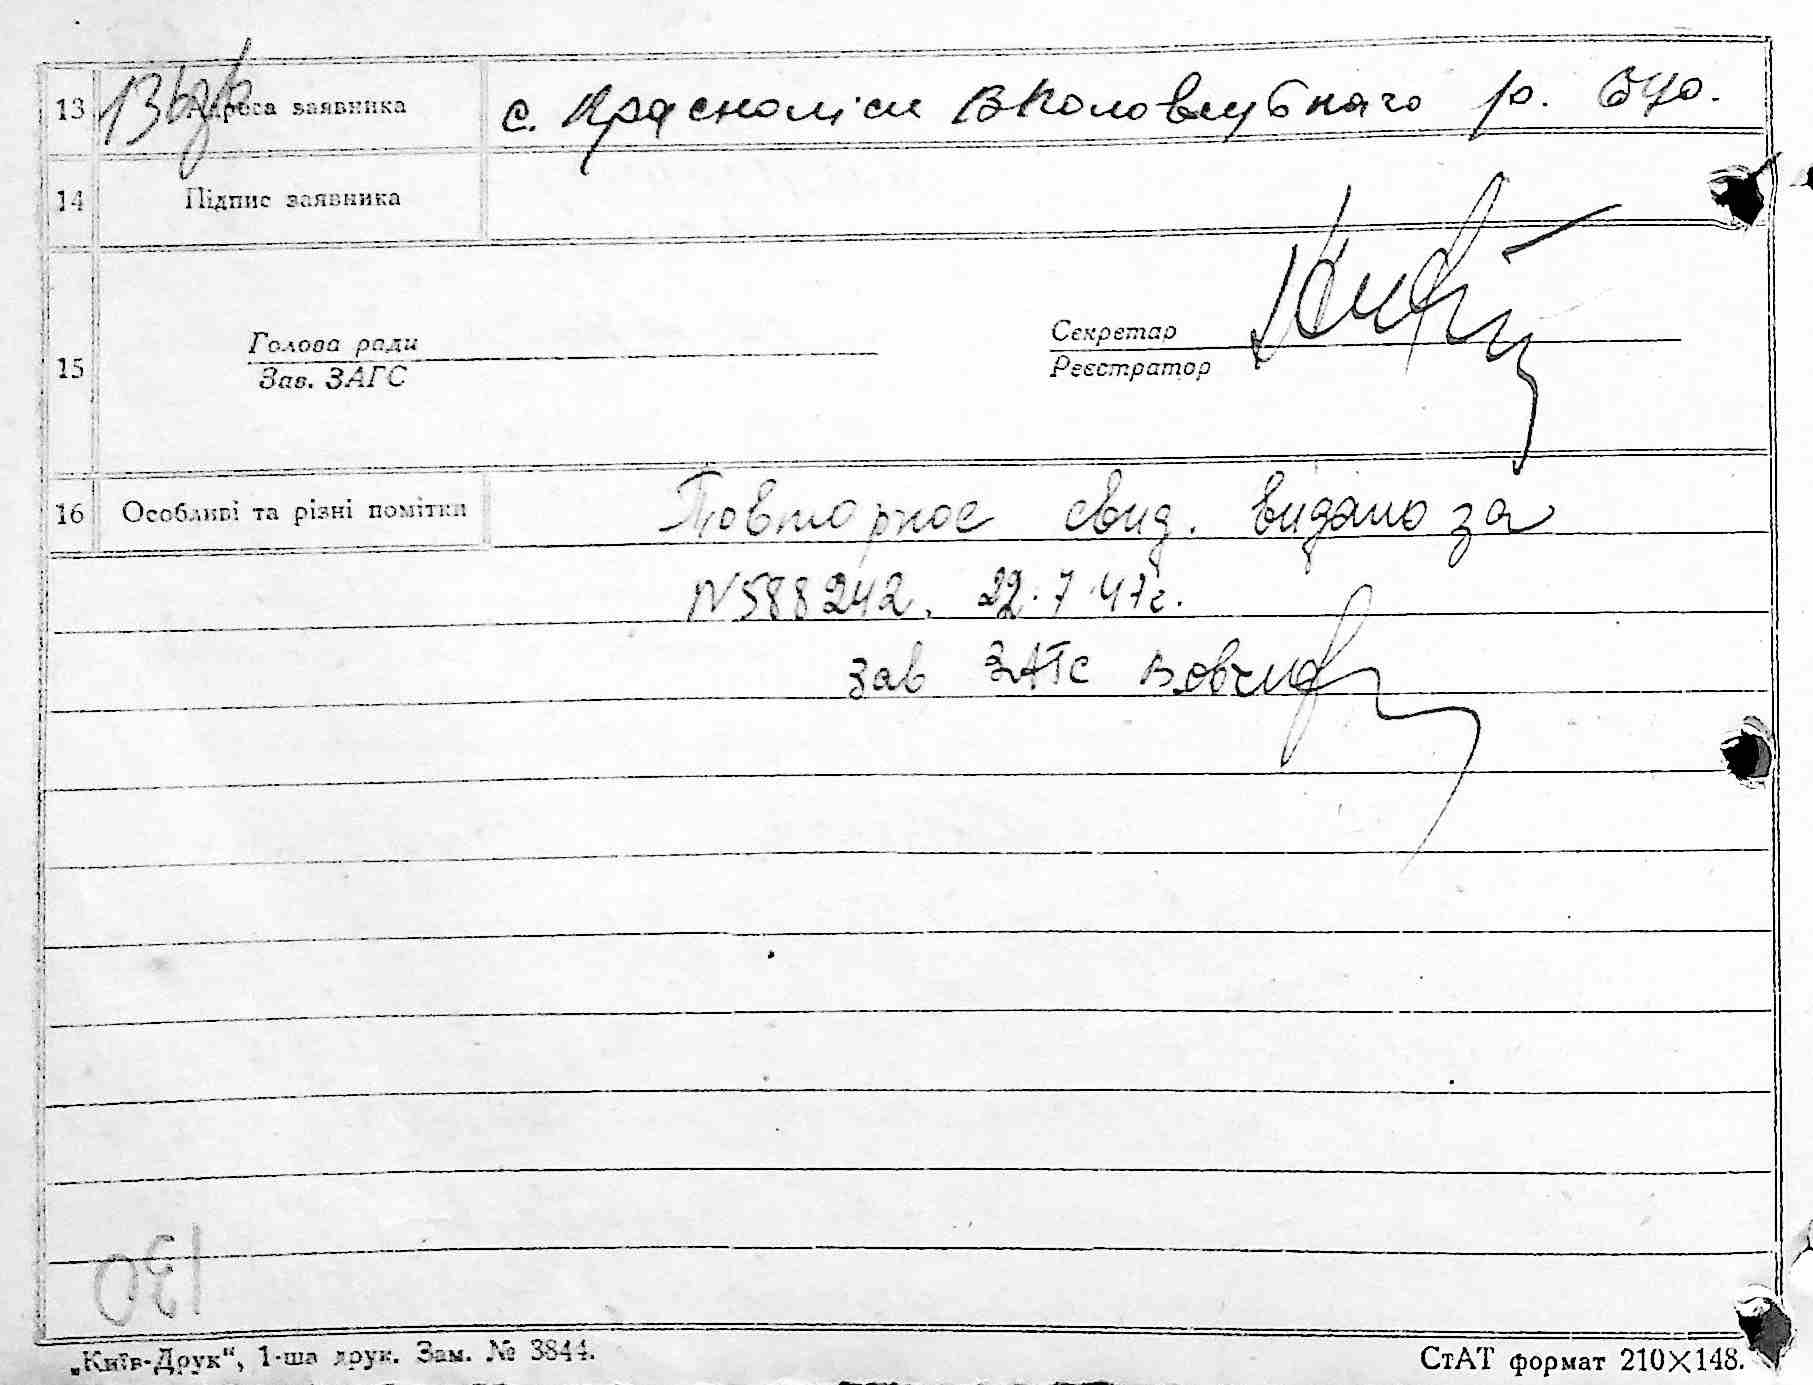 13 Адреса заявника с. Красноліси В Половецького р. О.
14 Підпис заявника
15 Голова ради
Зав. ЗАГС
Секретар
Реєстратор
16 Особливі та різні помітки Повторное свид. видано за
N588242. 22.7.47г.
зав ЗАГС
130
„Київ-Друк“, 1-ша друк. Зам. № 3844.
СтАТ формат 210×148.